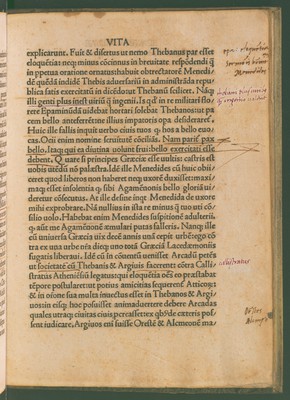 VITA
explicarunt. Fuit & disertus ut nemo Thebanus par esset
eloquētiæ: neq; minus cōcinnus in breuitate respondēdi q̄
in ppetua oratione ornatus: habuit obtrectatorē Menecli-
dē quēdā indidē Thebis aduersariū in administrāda repu
blica satis exercitatū in dicēdo: ut Thebanū scilicet. Nāq;
illi genti plus inest uiriū q̄ ingenii. Is qd̓ in re militari flo-
rere Epaminūdā uidebat hortari solebat Thebanos: ut pa
cem bello anteferrēt: ne illius imperatoris opa desiderares̄.
Huic ille fallis inquit uerbo ciuis tuos q̓ hos a bello euo
cas. Ocii enim nomine seruitutē cōcilias. Nam parit̄ pax
bello. Itaq; qui ea diutina uolunt frui: bello exercitati esse
debent. Quare si principes Græciæ esse uultis: castris est
uobis utēdū nō palæstra. Idē ille Meneclides cū huic obii-
ceret quod liberos non haberet neq; uxorē duxisset: maxi
maq; esset insolentia q̓ sibi Agamēnonis bello gloriā ui-
deretur cōsecutus. At ille desine inqt Meneclida de uxore
mihi exprobrare. Nā nullius in ista re minus q̄ tuo uti cō
silio uolo. Habebat enim Meneclides suspitionē adulterii.
q̓ aūt me Agamēnonē æmulari putas falleris. Nanq; ille
cū uniuersa Græcia uix decē annis unā cepit urbē: ego cō
tra ex una urbe nr̄a dieq; uno totā Græciā Lacedæmoniis
fugatis liberaui. Idē cū in cōuentū uenisset Arcadū petēs
ut societatē cū Thebanis & Argiuis facerent: cōtra Calli-
stratus Atheniēsiū legatus: qui eloquētia oēs eo præstabat
tēpore postularet: ut potius amicitias sequerent̄ Atticoꝝ:
& in orōne sua multa inuectus esset in Thebanos & Argi-
uos: in eisq; hoc posuisset animaduertere debere Arcadas
quales utraq; ciuitas ciuis percasset: ex qbꝰ de cæteris pos-
sent iudicare. Argiuos eni fuisse Orestē & Alcmeonē ma